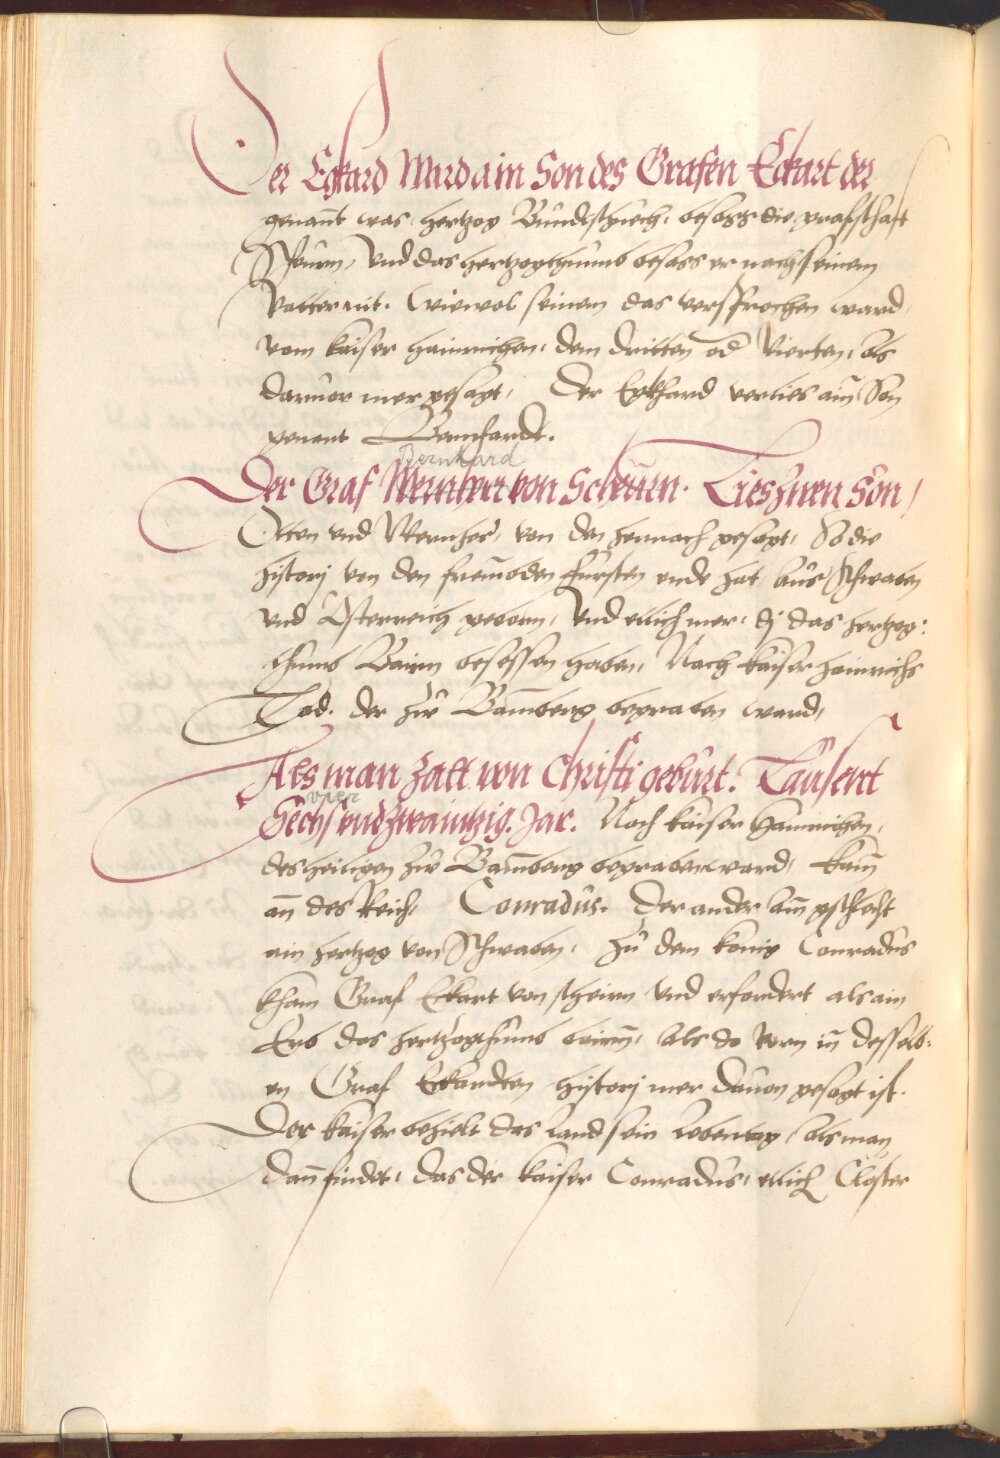 Der Eghard Ward ain Son des Grafen Eckart der
genant was hertzog Bundtschuech, besass die grafschaft
Scheurn, Und das hertzogthumb besass er nach seinem
Vatter nit. Wiewol seinem das versprochen ward
vom kaiser hainrichen, dem dritten od Vierten, als
daruor mer gesagt, Der Egkhard verlies ain Son
genant Bernhardt.
Bernhard
Der Graf von Scheurn. Lies zwen Son,
Otten und Wernher, von den hernach gesagt, So die
histori von den frembden Fursten ende hat, aus Schwaben
und Osterreich geborn, Und etlich mer, dj das hertzog:
thumb Bairn besessen haben, Nach kaiser hainrichs
Tod. der zu Bamberg begraben ward,
Als man zalt von Christi geburt. Tausent
vier
Sechs undzwaintzig. Jar. Nach kaiser Hainrichen,
des heiligen zu Bamberg begraben ward, kam
an des Reich, Conradus. Der ander ain gschlecht
ain hertzog von Schwaben, Zu dem konig Conradus
kham Graf Eckart von scheirn und erfordert als ain
Erb das hertzogthumb bairn, als do vorn in desselb:
en Graf Eckardten histori mer dauon gesagt ist.
Der kaiser behielt das land sein lebentag, als man
dan findet, das der kaiser Conradus, etlich Closter